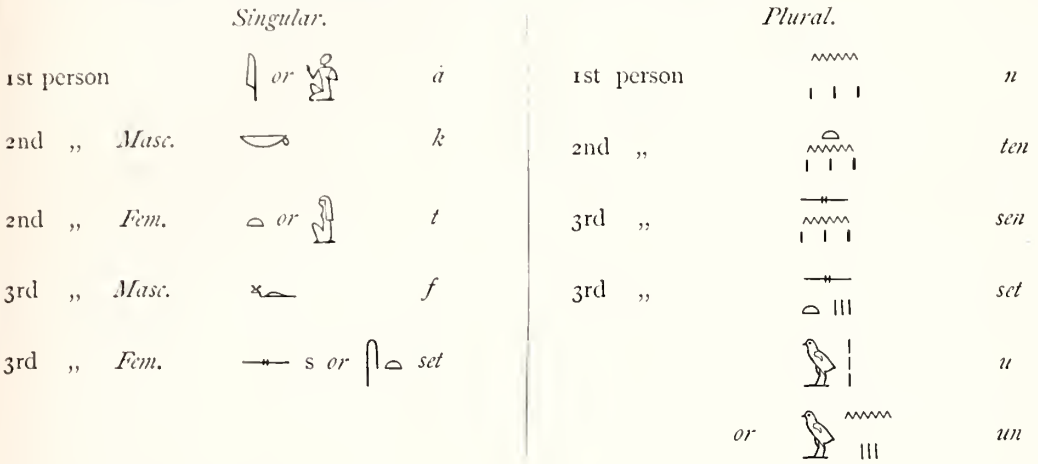 Singular.
1st person 𓇋 or 𓀀 ȧ
2nd ,, Masc. 𓎡 k
2nd ,, Fem. 𓏏 or 𓁐 t
3rd ,, Masc. 𓆑 f
3rd ,, Fem. 𓊃 s or 𓋴𓏏 set
Plural.
1st person 𓈖𓏥 n
2nd ,, 𓏏𓈖𓏥 ten
3rd ,, 𓊃𓈖𓏥 sen
3rd ,, 𓊃𓏏𓏥 set
𓅱𓏨 u
or 𓅱𓈖𓏥 un